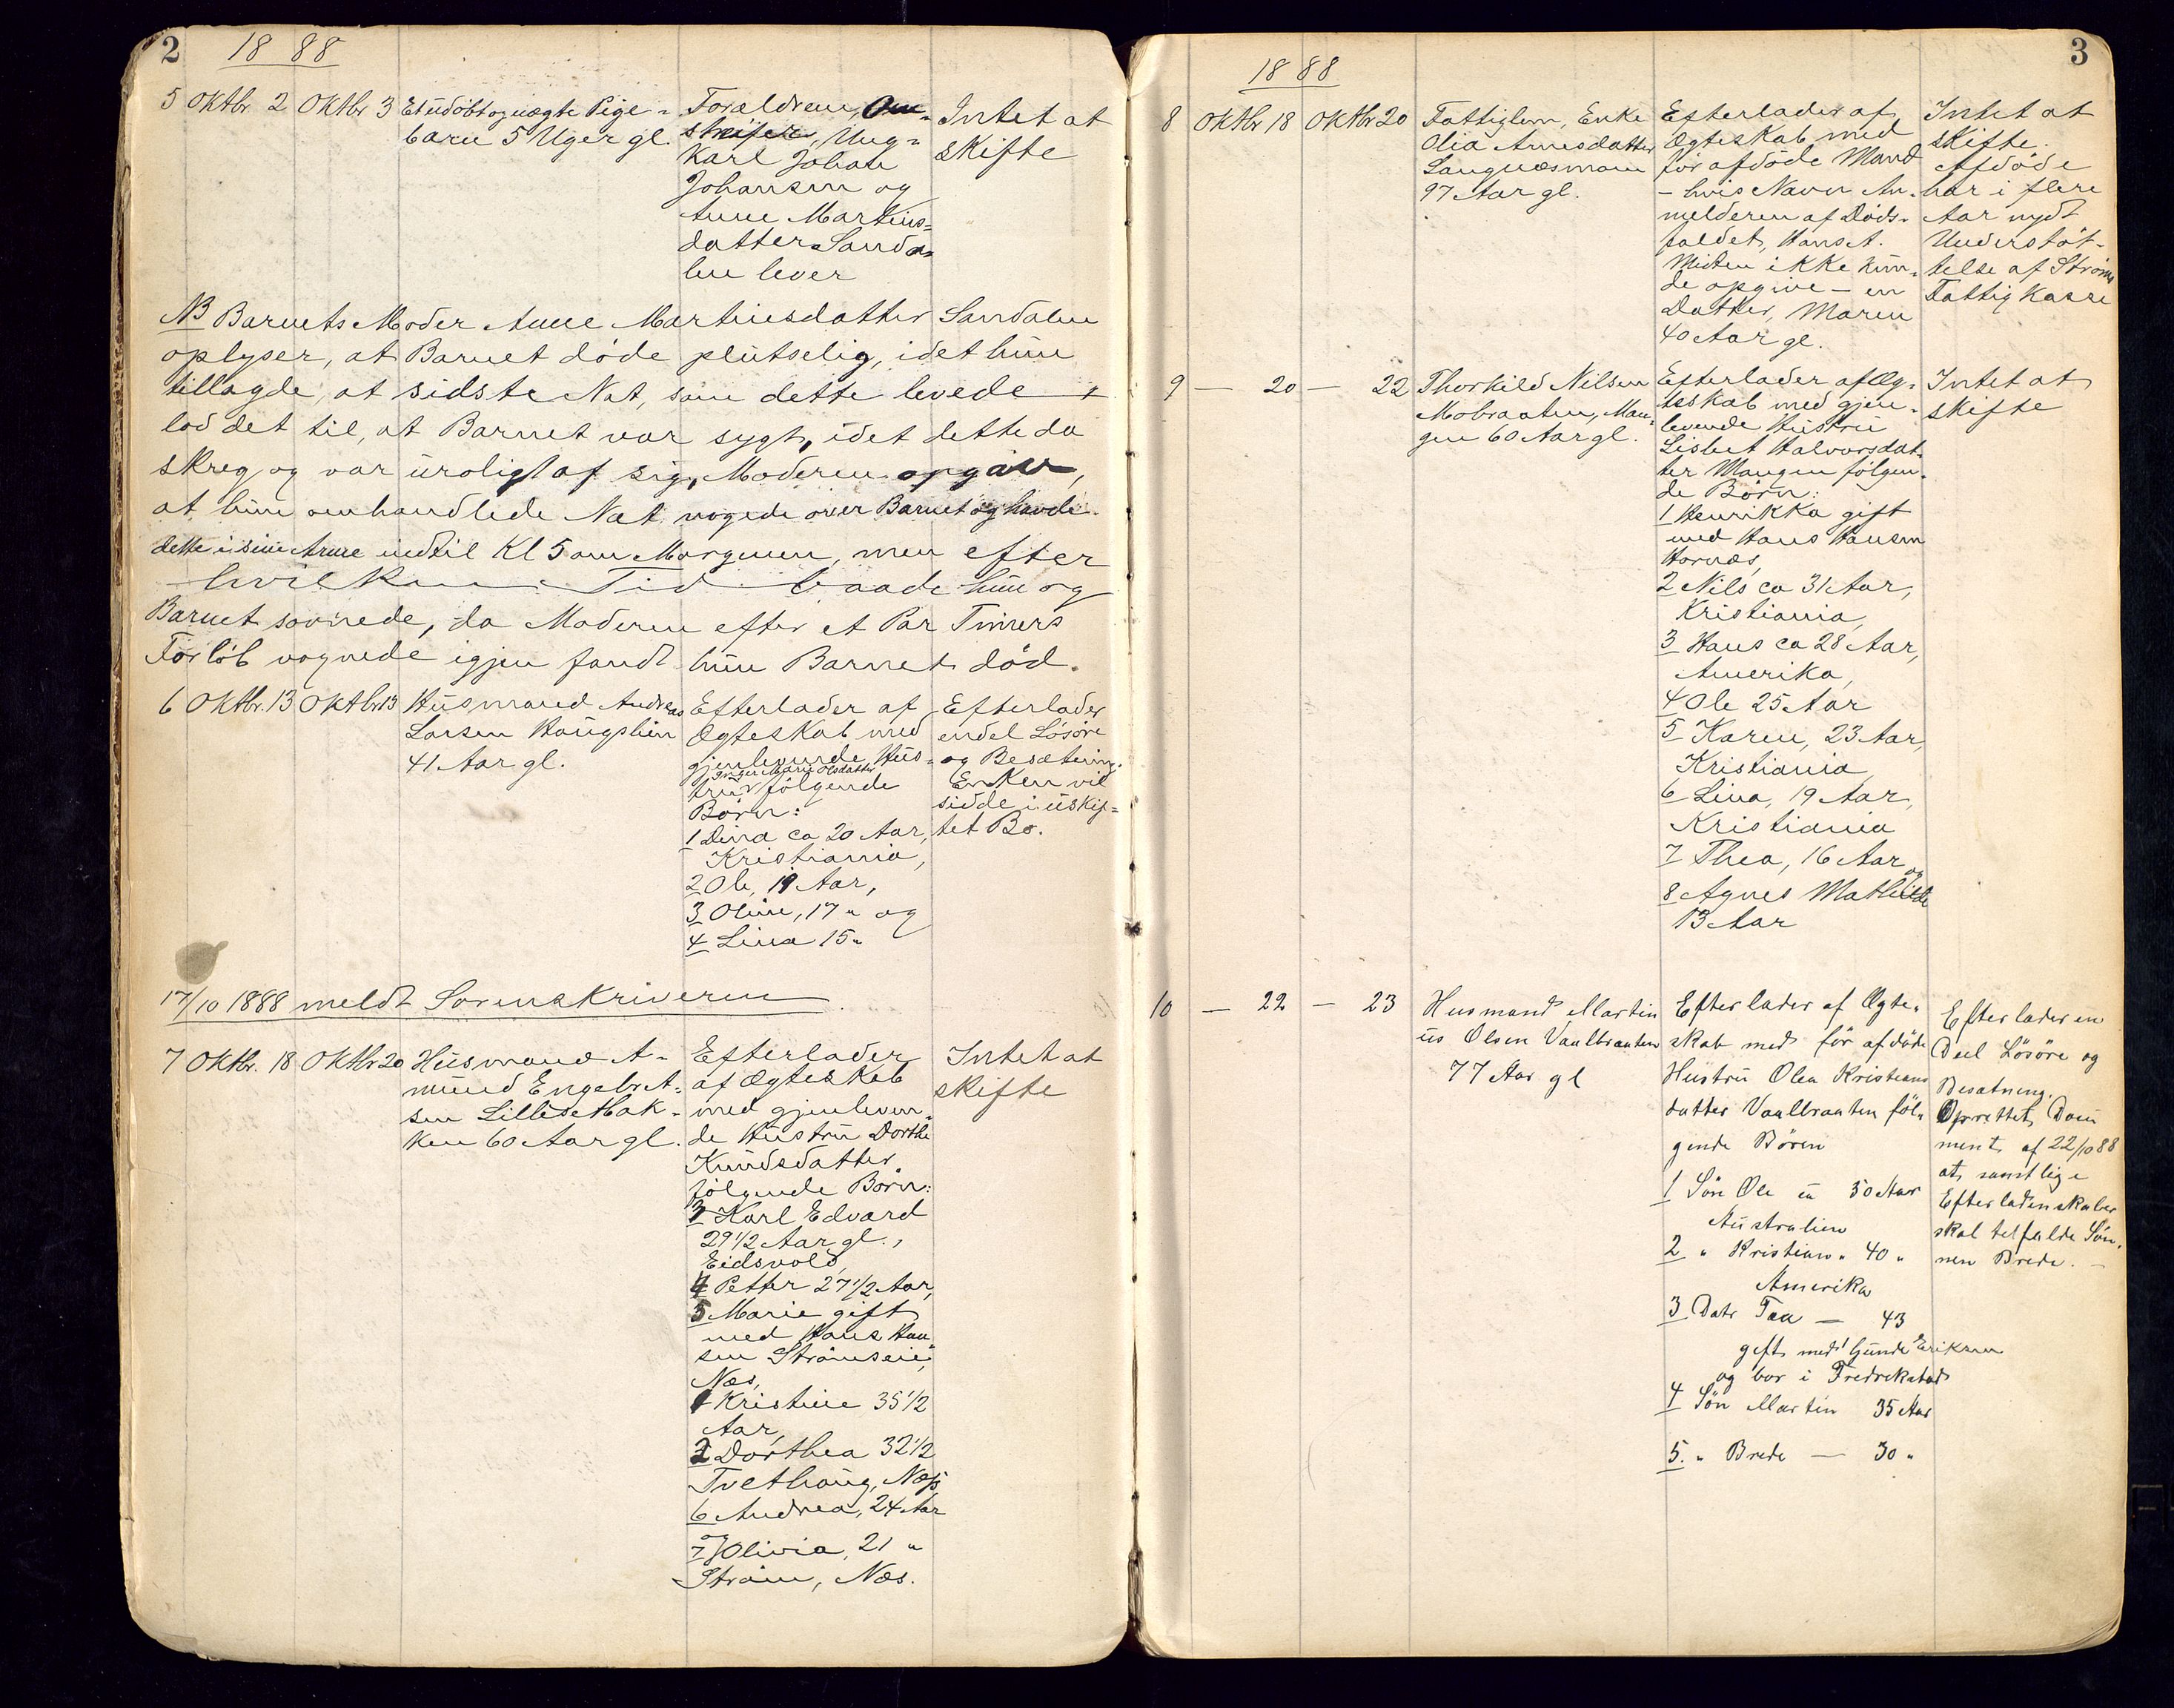 2
1888
5 Oktbr. 2 Oktbr 3 Et udöbt og uægte Pige-
barn 5 Uger gl.
Forældrene, Om-
streifer, Ung-
Karl Johan
Johansen og
Anne Martins-
datter Sanda-
len lever
Intet at
skifte
NB Barnets Moder Anne Martinsdatter Sandalen
oplyser, at Barnet döde plutselig, idet hun
tillagde, at sidste Nat, som dette levede,
lod det til, at Barnet var sygt, idet dette da
skreg og var uroligt af sig, Moderen opgav,
at hun omhandlede Nat vogede over Barnet og havde
dette i sine Arme indtil Kl 5 om Morgenen, men efter
hvilken Tid baade hun og
Barnet sovnede, da Moderen efter et Par Timers
Forlöb vognede igjen fandt hun Barnet död.
6 Oktbr. 13 Oktbr 13 Husmand Andreas
Larsen Haugslien
41 Aar gl.
Efterlader af
Ægteskab med
gjenlevende Hus-
Inger Marie Olsdatter
tru følgende
Børn:
1 Dina ca 20 Aar,
Kristiania,
2 Ole, 19 Aar,
3 Oline, 17 " og
4 Lina 15 "
Efterlader
endel Lösöre
og Besætning.
Enken vil
sidde i uskif-
tet Bo.
17/10 1888 meldt Sorenskriveren
7 Oktbr. 18 Oktbr 20 Husmand A-
mund Engebret-
sen Lilleset
ken 60 Aar gl.
Efterlader
af Ægteskab
med gjenleven-
de Hustru Dorthe
Knudsdatter
følgende Børn:
3 Karl Edvard
29 1/2 Aar gl.,
Eidsvold,
4 Petter 27 1/2 Aar,
5 Marie gift
med Hans Han-
sen Strömseie,
Næs,
1 Kristine 35 1/2
Aar,
2 Dorthea 32 1/2
Tvethaug, Næs,
6 Andrea, 24 Aar
7 Olivia, 21 "
Ström, Næs.
Intet at
skifte
3
1888
8 Oktbr 18 Oktbr 20 Fattiglem, Enke
Olia Arnesdatter
Langnæsmoen
97 Aar gl.
Efterlader af
Ægteskab med
för afdöde Mand
- hvis Navn An-
melderen af Döds-
faldet, Hans A.
Mieten ikke kun-
de opgive - en
Datter, Maren
40 Aar gl.
Intet at
skifte.
Afdöde
har i flere
Aar nydt
Understöt-
telse af Ströms
Fattigkasse
9 — 20 — 22 Thorkild Nilsen
Mobraaten, Man-
gen 60 Aar gl.
Efterlader af Æg-
teskab med gjen-
levende Hustru
Lisbet Halvorsdat-
ter Mangen følgen-
de Börn:
1 Henrikka gift
med Hans Hansen
Hornæs,
2 Nils ca 31 Aar,
Kristiania,
3 Hans ca 28 Aar,
Amerika,
4 Ole 25 Aar
5 Karen, 23 Aar,
Kristiania
6 Lina, 19 Aar,
Kristiania
7 Thea, 16 Aar og
8 Agnes Mathilde
13 Aar
Intet at
skifte
10 — 22 — 23 Husmand Martin
us Olsen Vaalbraaten
77 Aar gl
Efterlader af Ægte-
skab med för afdöde
Hustru Olea Kristians
datter Vaalbraaten föl-
gende Börn
1 Sön Ole 50 Aar
Australien
2 " Kristian " 40 "
Amerika
3 Datr — 43
gift med Gunder Eriksen
og bor i Fredrikstad
4 Sön Martin 35 Aar
5. " Brede — 30 "
Efterlader en
Deel Lösöre og
Besætning.
Oprettet Docu
ment af 22/10 88
at samtlige
Efterladenskaber
skal tilfalde Sön-
nen Brede. —